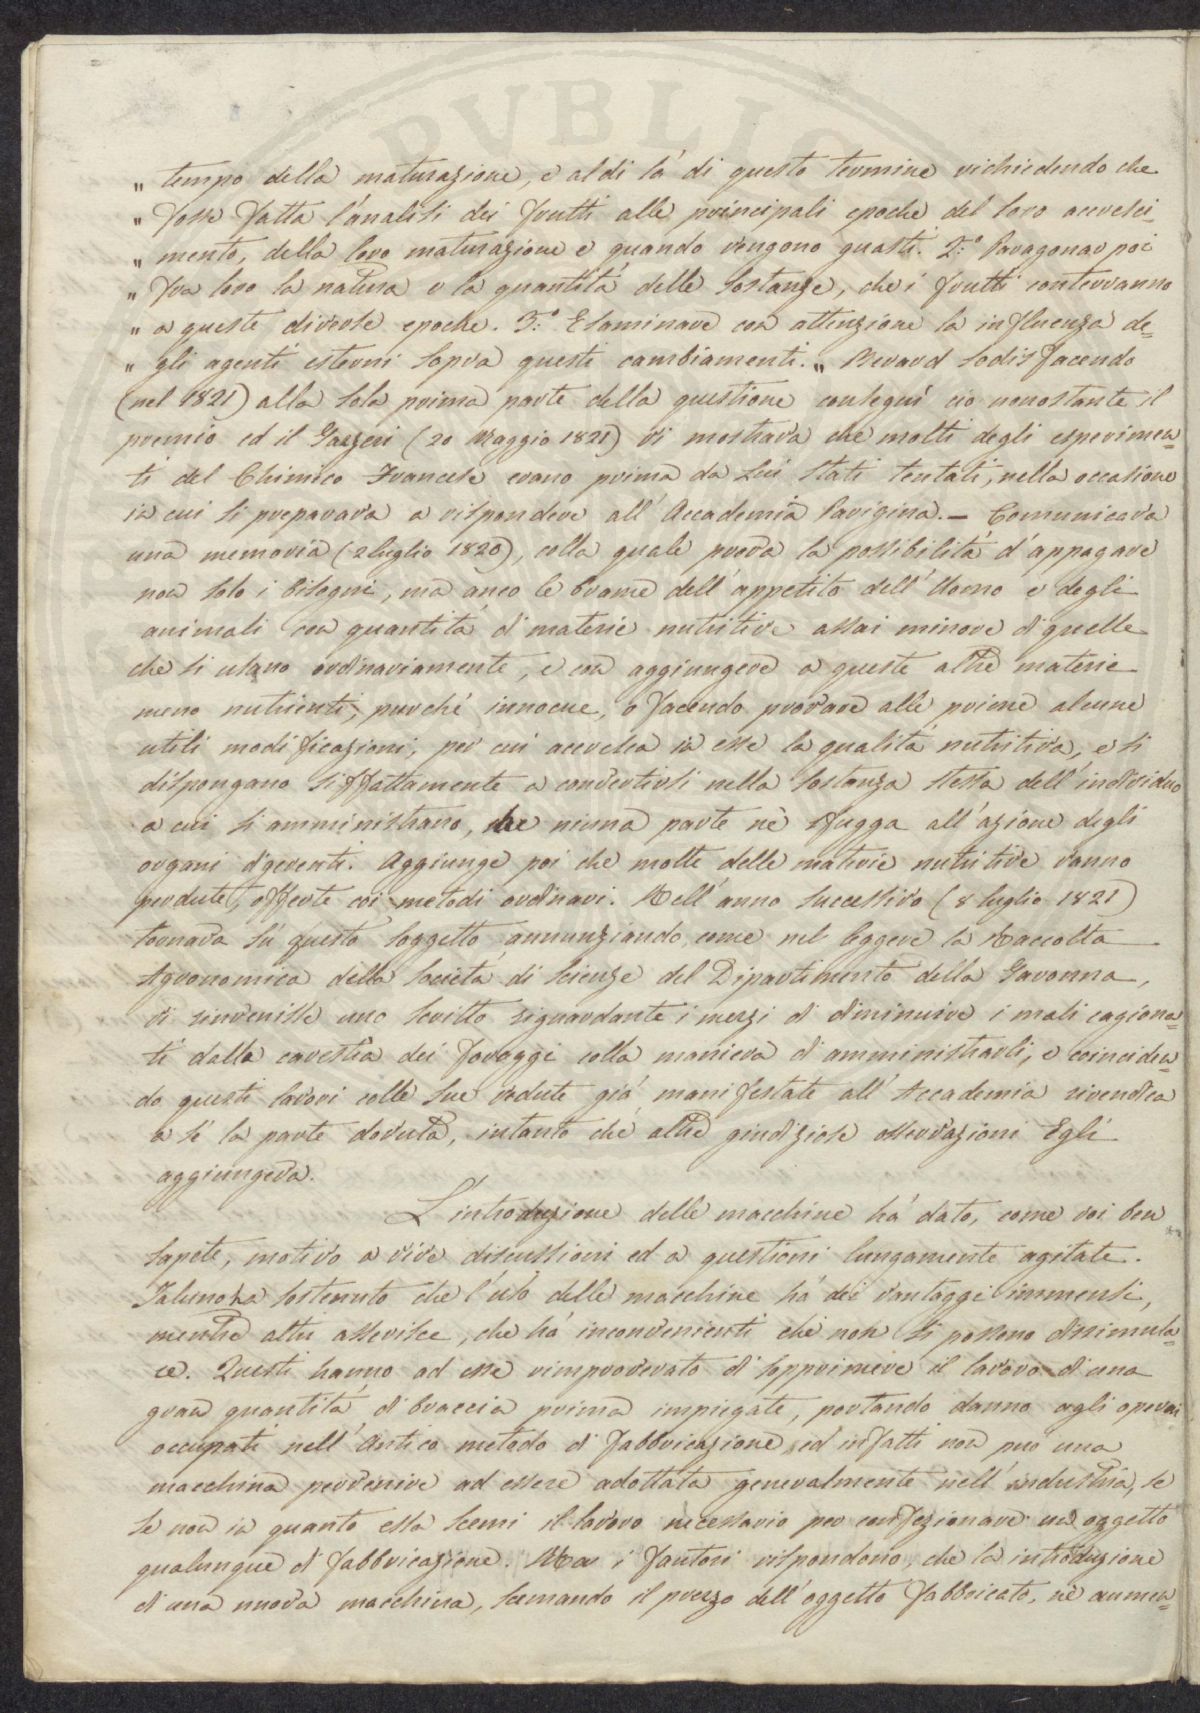 PVBLIC
„ tempo della maturazione, e al di là di questo termine richiedendo che
„ fosse fatta l'analisi dei frutti alle principali epoche del loro accresci=
„ mento, della loro maturazione e quando vengono guasti. 2.° Paragonar poi
„ fra loro la natura e la quantità delle sostanze, che i frutti conterranno
„ a queste diverse epoche. 3.° Esaminare con attenzione la influenza de=
„ gli agenti esterni sopra questi cambiamenti. „ Berard sodisfacendo
(nel 1821) alla sola prima parte della questione conseguì ciò nonostante il
premio ed il Gazzeri (20 Maggio 1821) vi mostrava che molti degli esperimen=
ti del Chimico Francese erano prima da Lui stati tentati, nella occasione
in cui si preparava a rispondere all'Accademia Parigina. — Comunicava
una memoria (2 luglio 1820), colla quale prova la possibilità d'appagare
non solo i bisogni, ma anco le brame dell'appetito dell'Uomo e degli
animali con quantità di materie nutritive assai minore di quelle
che si usano ordinariamente, e con aggiungere a queste altre materie
meno nutrienti, purchè innocue, o facendo provare alle prime alcune
utili modificazioni, per cui accresca in esse la qualità nutritiva, e si
dispongano siffattamente a convertirsi nella sostanza stessa dell'individuo
a cui si amministrano, che niuna parte ne sfugga all'azione degli
organi digerenti. Aggiunge poi che molte delle materie nutritive vanno
perdute, offerte coi metodi ordinari. Nell'anno successivo (8 luglio 1821)
tornava su questo soggetto annunziando, come nel leggere la Raccolta
Agronomica della società di scienze del Dipartimento della Garonna,
vi rinvenisse uno scritto riguardante i mezzi di diminuire i mali cagiona=
ti dalla carestia dei foraggi colla maniera di amministrarli, e coinciden=
do questi lavori colle sue vedute già manifestate all'Accademia rivendica
a sè la parte dovuta, intanto che altre giudiziose osservazioni Egli
aggiungeva.
L'introduzione delle macchine ha dato, come voi ben
sapete, motivo a vive discussioni ed a questioni lungamente agitate.
Taluno ha sostenuto che l'uso delle macchine ha dei vantaggi immensi,
mentre altri asserisce, che ha inconvenienti che non si possono dissimula=
re. Questi hanno ad esse rimproverato di sopprimere il lavoro di una
gran quantità di braccia prima impiegate, portando danno agli operai
occupati nell'antico metodo di fabbricazione, ed infatti non può una
macchina pervenire ad essere adottata generalmente nell'industria, se
se non in quanto essa scemi il lavoro necessario per confezionare un oggetto
qualunque di fabbricazione. Ma i fautori rispondono, che la introduzione
di una nuova macchina, scemando il prezzo dell'oggetto fabbricato, ne aumen=